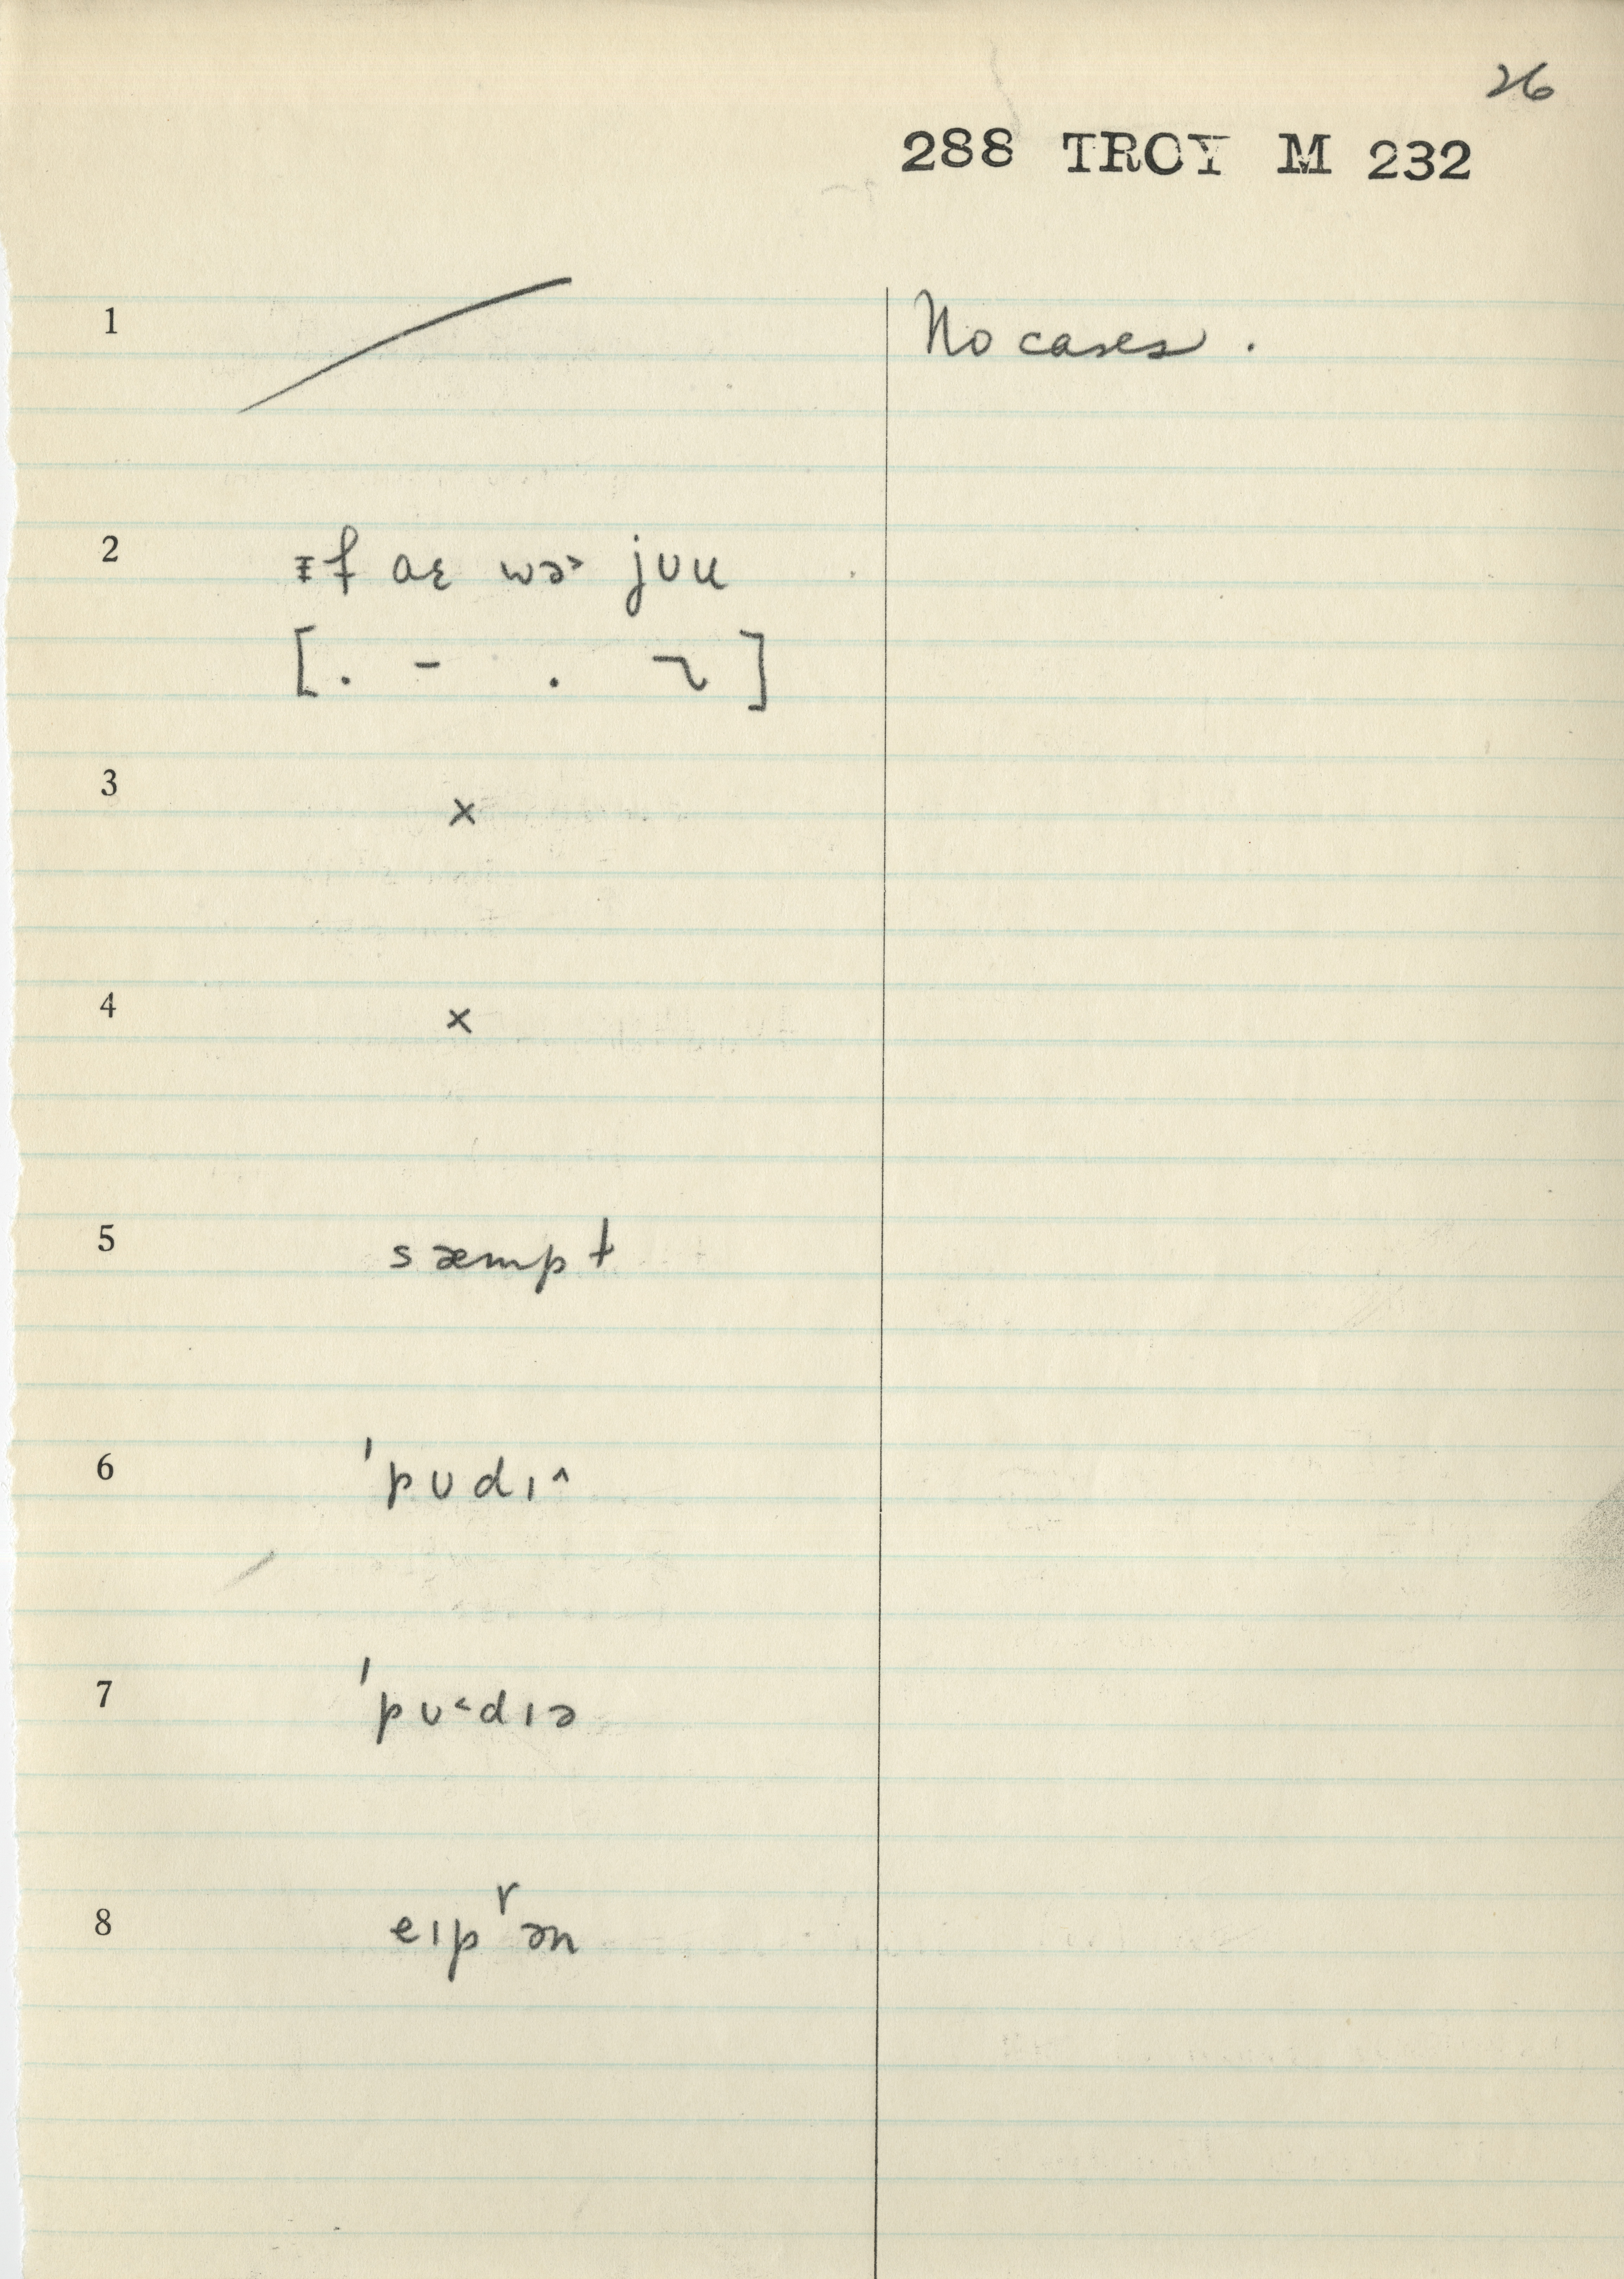 26
288 TROY M 232
1 No cases.
2 ɪf aɛ wə˃ jʊu
[. - . ]
3 ×
4 ×
5 sæmpt
6 ˈpʊdɪ^
7 ˈpʊ˂dɪə
8 eɪpʳən